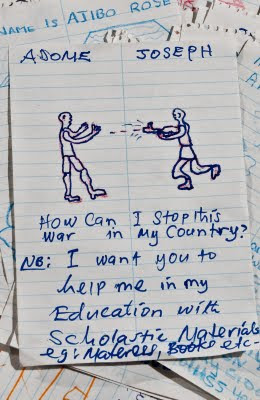 NAME IS AJIBO ROSE
ADOME JOSEPH
How Can I Stop this
war in my Country?
NB: I want you to
help me in my
Education with
Scholastic Materials
eg: Materess, Books etc-